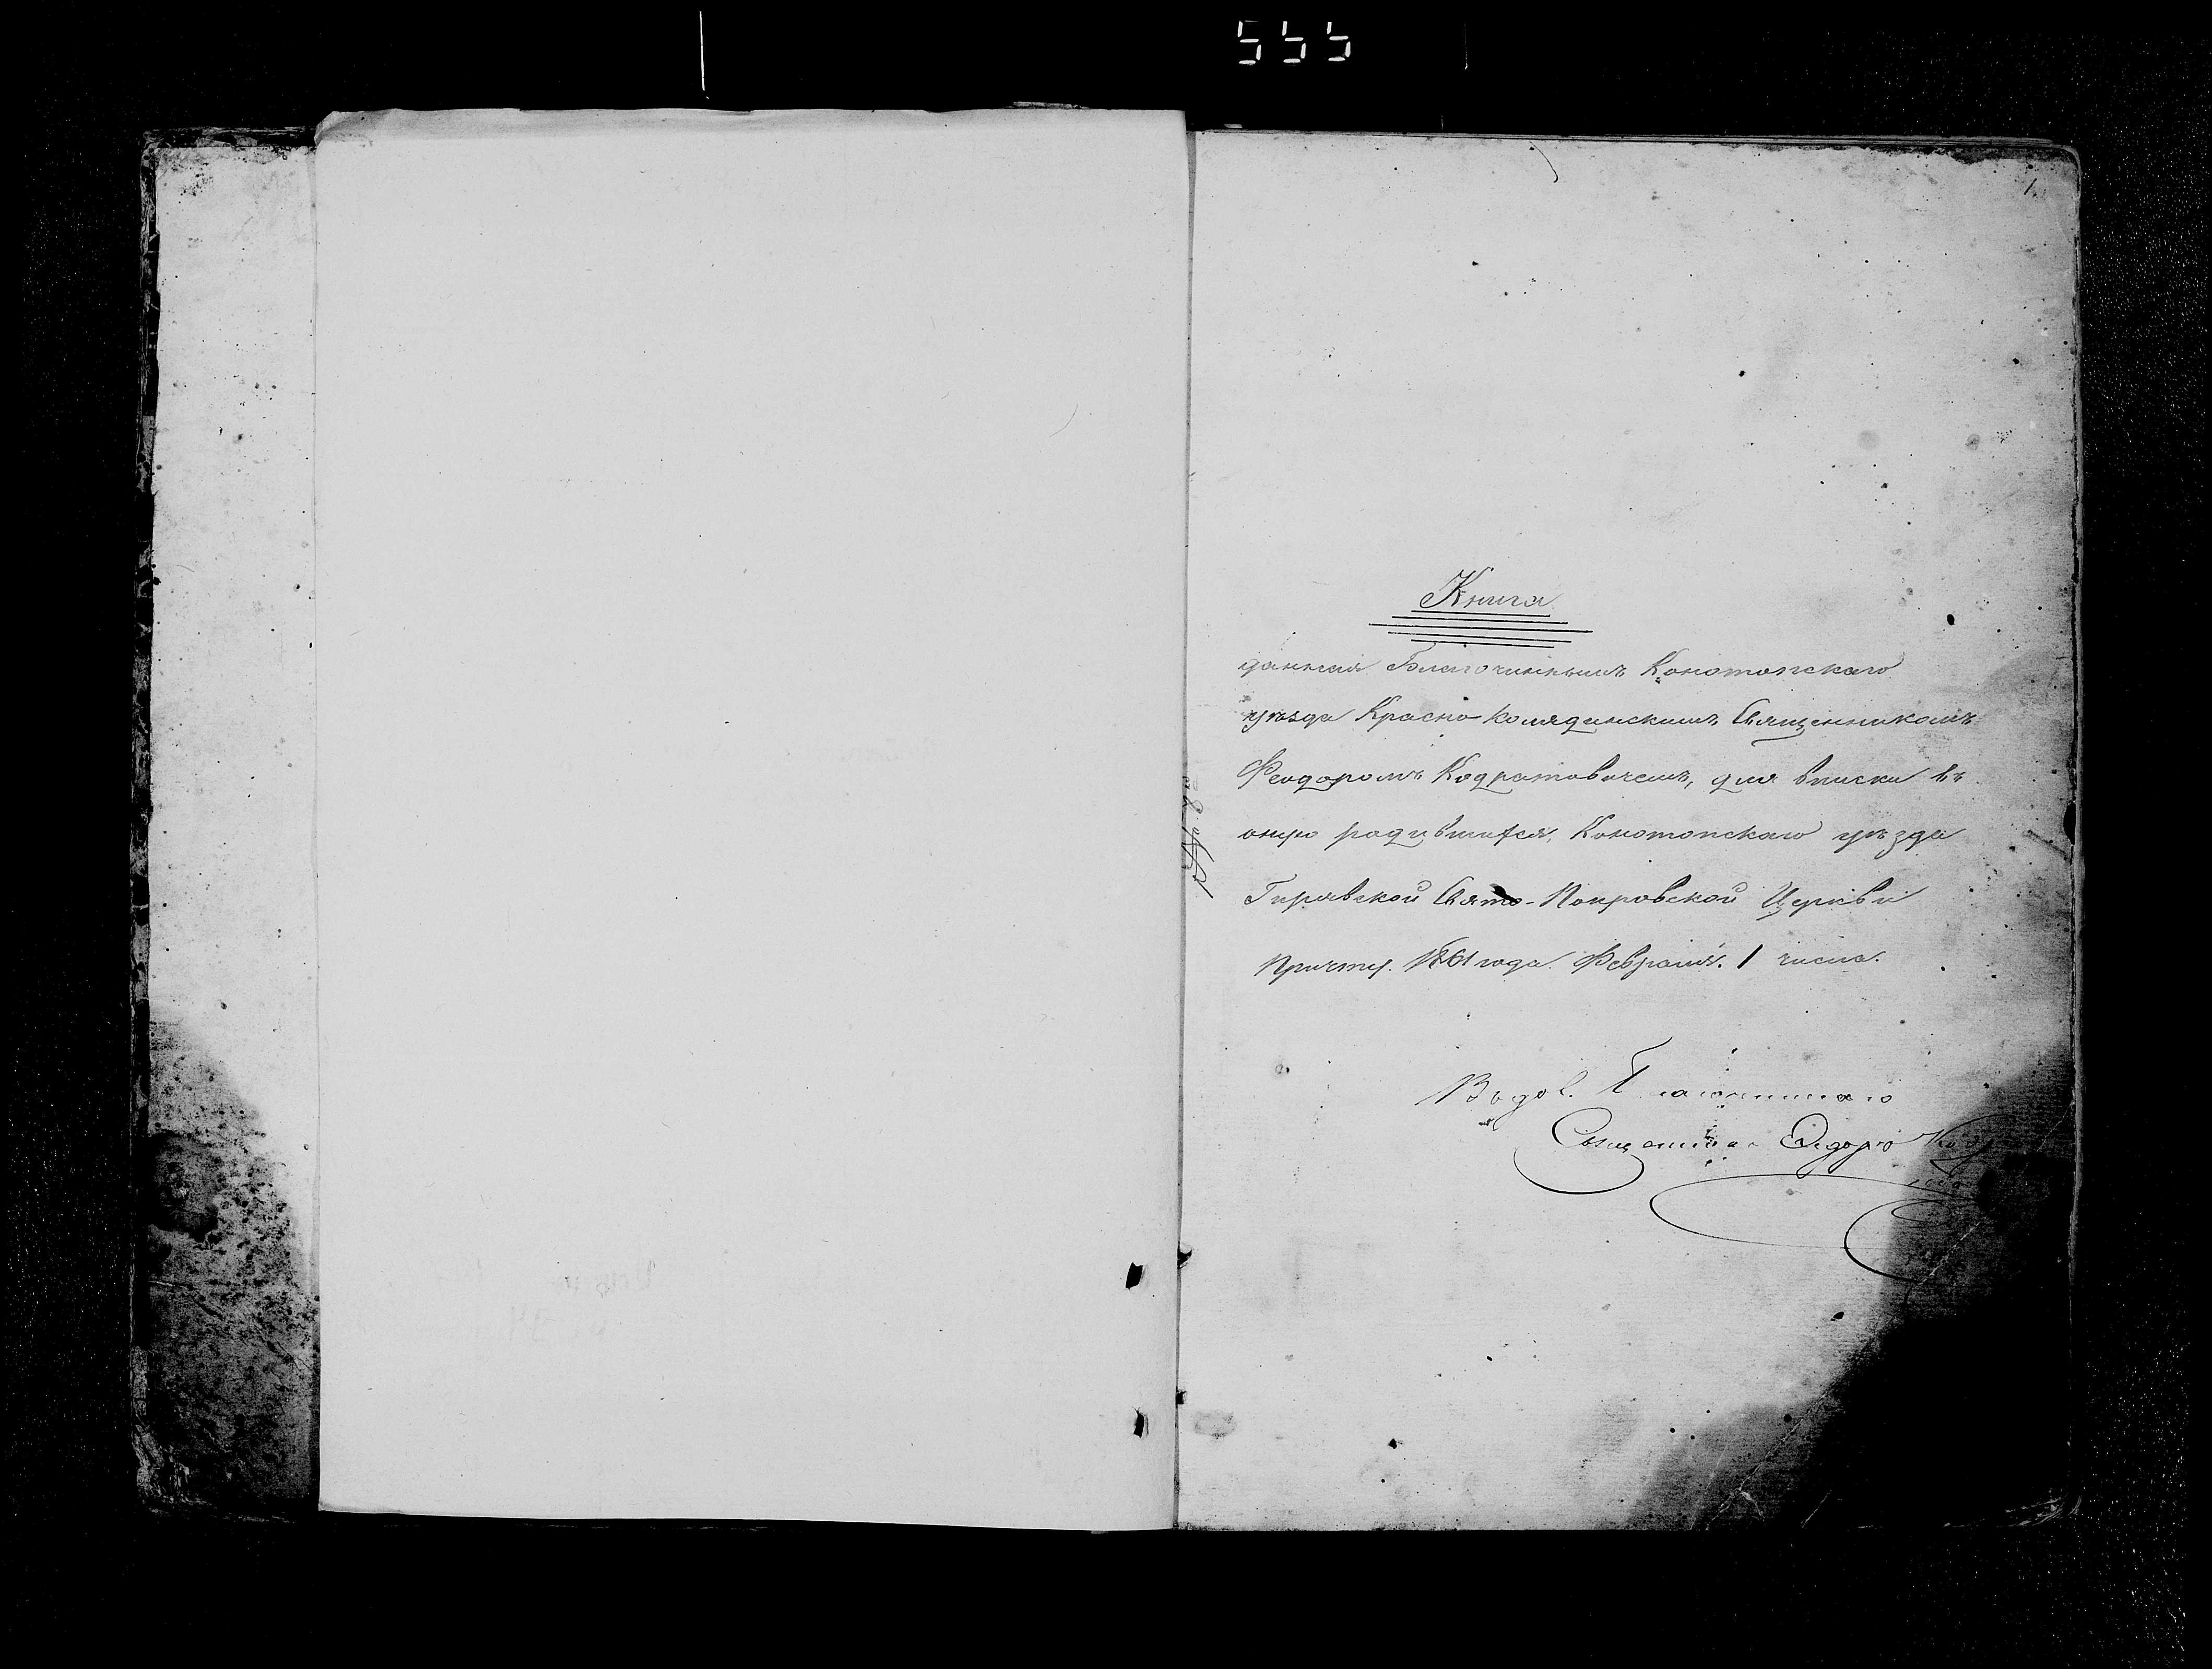 555
1.
Книга
данная Благочиннымъ Конотопскаго
уѣзда Красно-колядинскимъ Священникомъ
Феодоромъ Кодратовичемъ, для вписки въ
оную родившихся, Конотопскаго уѣзда
Гирявской Свято-Покровской Церкви
Причту. 1861 года. Февраля. 1 числа.
Благочиннаго
Священникъ Ѳедоръ